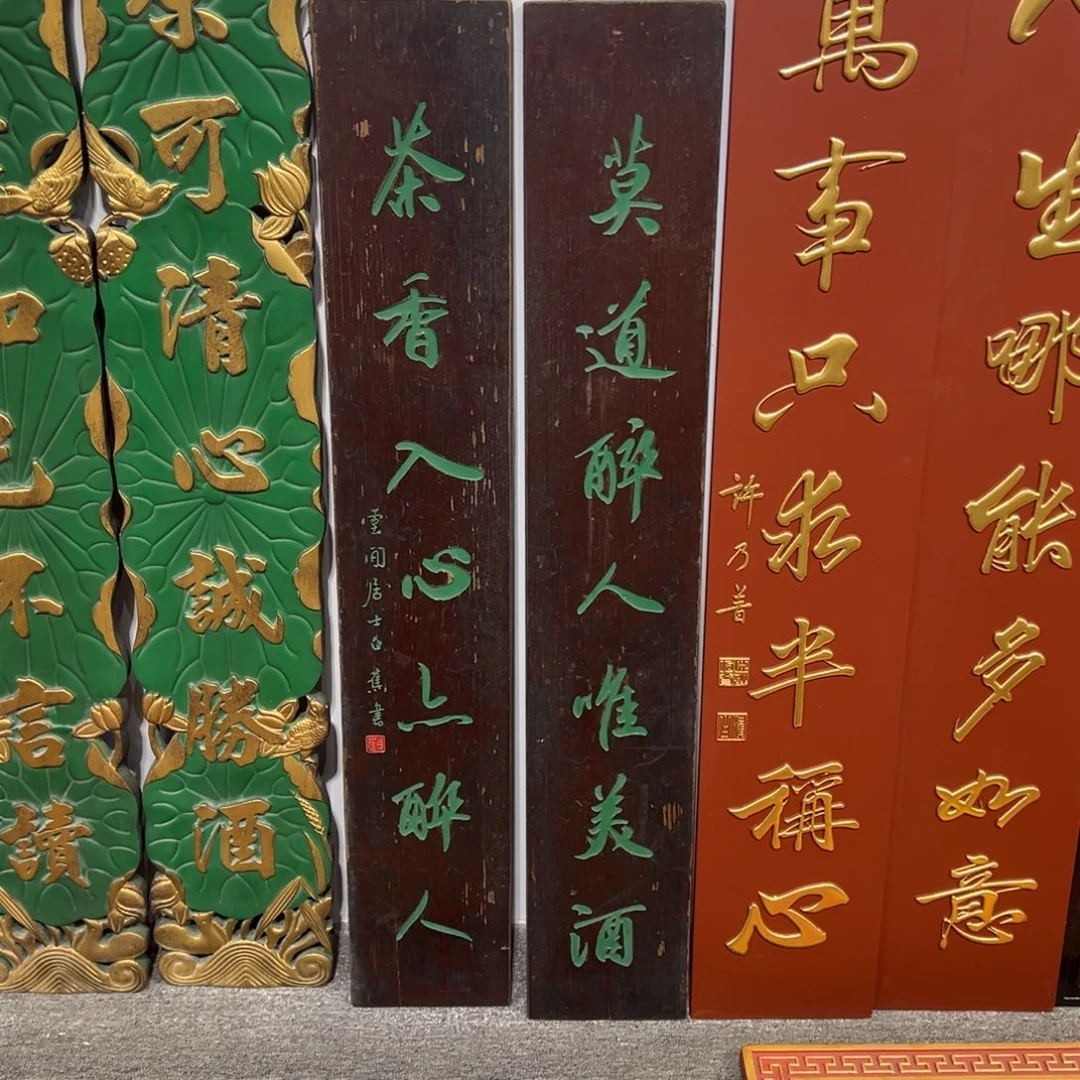 人生哪能多如意
萬事只求半稱心
許乃普
莫道醉人唯美酒
茶香入心亦醉人
雲間居士白蕉書
可清心誠勝酒
己不言讀